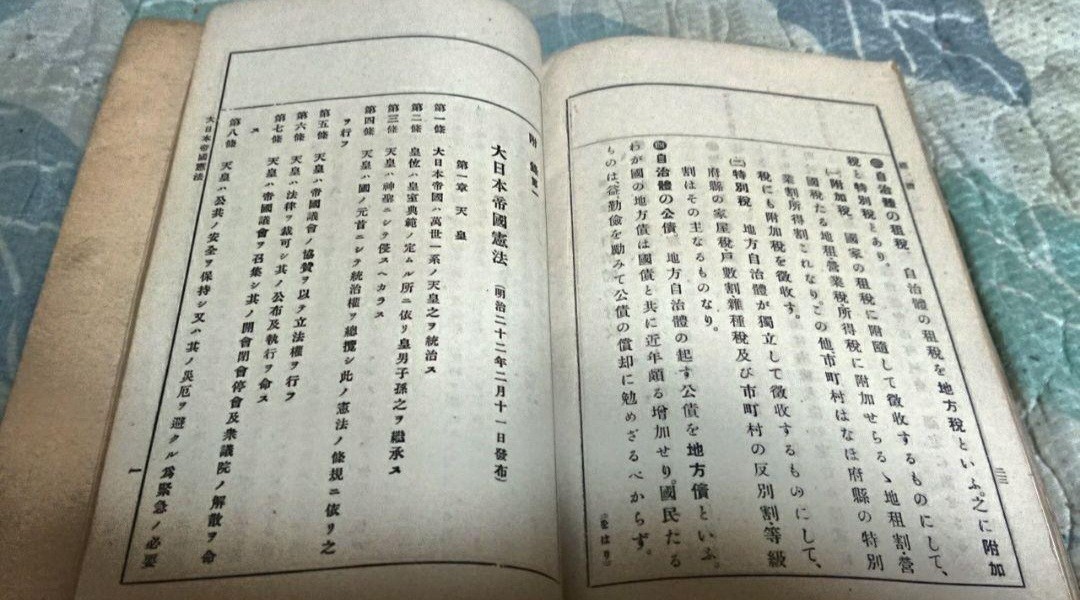 自治體の租税　自治體の租税を地方税といふ。之に附加
税と特別税とあり。
㈠附加税　國家の租税に附隨して徴收するものにして、
國税たる地租・營業税・所得税に附加せらるゝ地租割・營
業割・所得割これなり。この他市町村はなほ府縣の特別
税にも附加税を徴收す。
㈡特別税　地方自治體が獨立して徴收するものにして、
府縣の家屋税・戸數割・雜種税及び市町村の反別割・等級
割はその主なるものなり。
自治體の公債　地方自治體の起す公債を地方債といふ。
わが國の地方債は國債と共に近年頗る增加せり。國民たる
ものは、益勤儉を勵みて公債の償却に勉めざるべからず。
(をはり)
附錄
大日本帝國憲法（明治二十二年二月十一日發布）
第一章　天皇
第一條　大日本帝國ハ萬世一系ノ天皇之ヲ統治ス
第二條　皇位ハ皇室典範ノ定ムル所ニ依リ皇男子孫之ヲ繼承ス
第三條　天皇ハ神聖ニシテ侵スヘカラス
第四條　天皇ハ國ノ元首ニシテ統治權ヲ總攬シ此ノ憲法ノ條規ニ依リ之
ヲ行フ
第五條　天皇ハ帝國議會ノ協贊ヲ以テ立法權ヲ行フ
第六條　天皇ハ法律ヲ裁可シ其ノ公布及執行ヲ命ス
第七條　天皇ハ帝國議會ヲ召集シ其ノ開會閉會停會及衆議院ノ解散ヲ命
ス
第八條　天皇ハ公共ノ安全ヲ保持シ又ハ其ノ災厄ヲ避クル爲緊急ノ必要
大日本帝國憲法
一